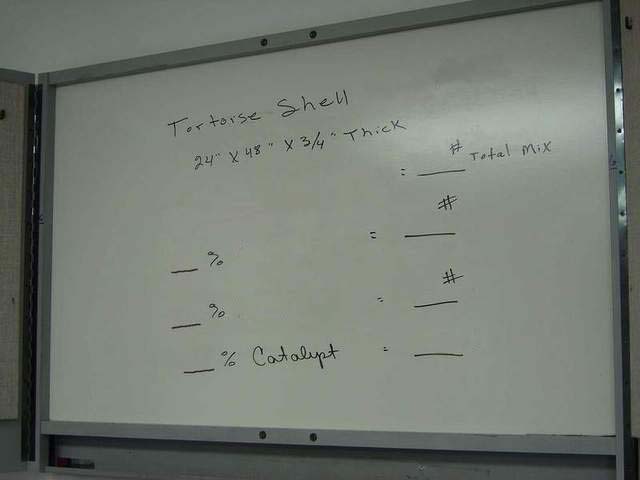 Tortoise Shell
24" X 48" X 3/4" Thick
= ___ # Total Mix
= ___ #
___ %
= ___ #
___ %
___ % Catalypt = ___